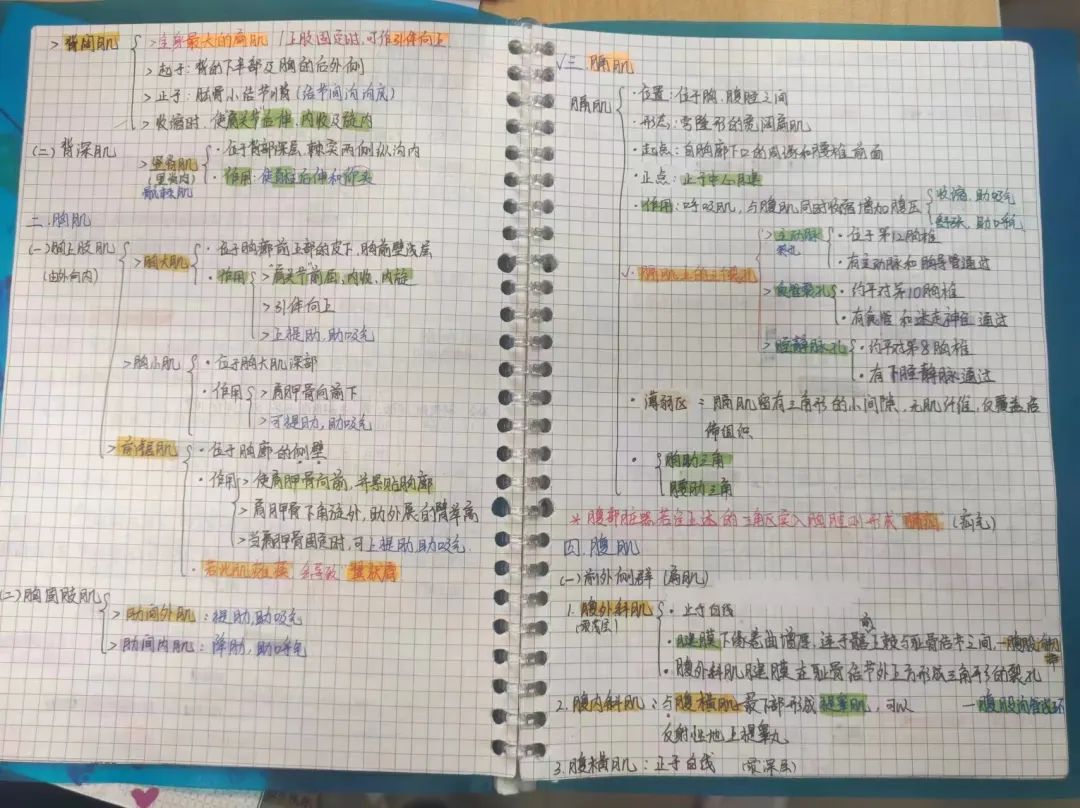 >背阔肌 >全身最大的扁肌 / 上肢固定时,可作引体向上
>起于:背的下半部及胸的后外侧
>止于:肱骨小结节嵴(结节间沟沟底)
>收缩时,使肩关节后伸、内收及旋内
(二)背深肌
>竖脊肌 (里长内) 骶棘肌
·位于背部深层,棘突两侧纵沟内
·作用:使脊柱后伸和仰头
二.胸肌
(一)胸上肢肌 (由外向内)
>胸大肌 ·位于胸廓前上部的皮下,胸前壁浅层
·作用 >肩关节前屈、内收、内旋
>引体向上
>上提肋,助吸气
>胸小肌 ·位于胸大肌深部
·作用 >肩胛骨向前下
>可提肋,助吸气
>前锯肌 ·位于胸廓的侧壁
·作用 >使肩胛骨向前,并紧贴胸廓
>肩胛骨下角旋外,助外展的臂举高
>当肩胛骨固定时,可上提肋助吸气.
·若此肌瘫痪 会导致 翼状肩
(二)胸固有肌
>肋间外肌:提肋,助吸气
>肋间内肌:降肋,助呼气
√三.膈肌
膈肌 ·位置:位于胸、腹腔之间
·形态:穹隆形的宽阔扁肌
·起点:自胸廓下口的周缘和腰椎前面
·止点:止于中心腱
·作用:呼吸肌,与腹肌同时收缩增加腹压 收缩,助吸气
舒张,助呼气
√·膈肌上的三个裂孔
>主动脉裂孔 ·位于第12胸椎
·有主动脉和胸导管通过
>食管裂孔 ·约平对第10胸椎
·有食管和迷走神经通过
>腔静脉孔 ·约平对第8胸椎
·有下腔静脉通过
·薄弱区:膈肌留有三角形的小间隙,无肌纤维,仅覆盖结
缔组织
·胸肋三角
腰肋三角
*腹部脏器若经上述的三角区突入胸腔则形成 膈疝 (疝气)
四.腹肌
(一)前外侧群(扁肌)
1.腹外斜肌 (最浅层) ·止于白线
·腱膜下缘卷曲增厚,连于髂前上棘与耻骨结节之间,—腹股沟韧带
·腹外斜肌腱膜在耻骨结节外上方形成三角形的裂孔
—腹股沟管浅环
2.腹内斜肌:与腹横肌最下部形成提睾肌,可以
反射性地上提睾丸
3.腹横肌:止于白线 (最深层)